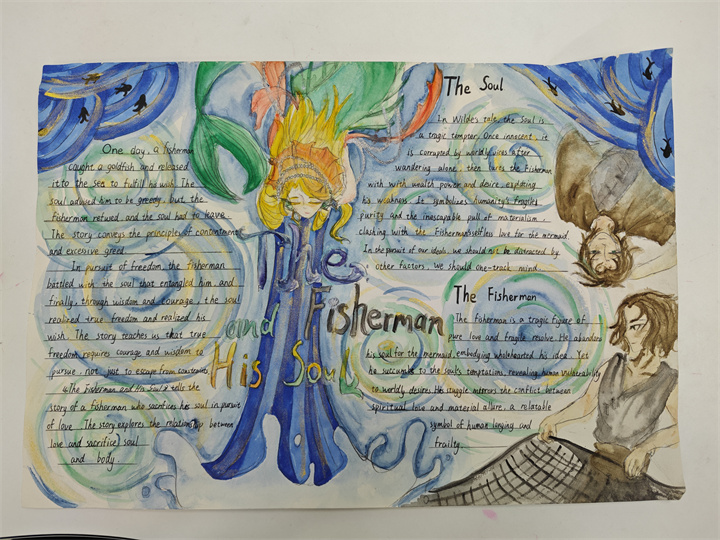 One day, a fisherman
caught a goldfish and released
it to the sea to fulfill his wish. The
soul advised him to be greedy, but the
fisherman refused and the soul had to leave.
The story conveys the principles of contentment
and excessive greed
In pursuit of freedom, the fisherman
battled with the soul that entangled him and
finally, through wisdom and courage, the soul
realized true freedom and realized his
wish. The story teaches us that true
freedom requires courage and wisdom to
pursue not just to escape from constraints
《The Fisherman and His Soul》 tells the
story of a fisherman who sacrifices his soul in pursuit
of love. The story explores the relationship between
love and sacrifice, soul
and body.
The
Fisherman
and
His Soul
The Soul
In Wilde's tale, the Soul is
a tragic tempter. Once innocent, it
is corrupted by worldly vices after
wandering alone, then lures the Fisherman
with with wealth power and desire, exploiting
his weakness. It symbolizes humanity's fragile
purity and the inescapable pull of materialism
clashing with the Fisherman's selfless love for the mermaid.
In the pursuit of our ideals, we should not be distracted by
other factors. We should one-track mind.
The Fisherman
The fisherman is a tragic figure of
pure love and fragile resolve. He abandons
his soul for the mermaid, embodying wholehearted his idea. Yet
he succumbs to the soul's temptations, revealing human vulnerability
to worldly desires. His stuggle mirrors the conflict between
spiritual love and material allure, a relatable
symbol of human longing and
frailty.